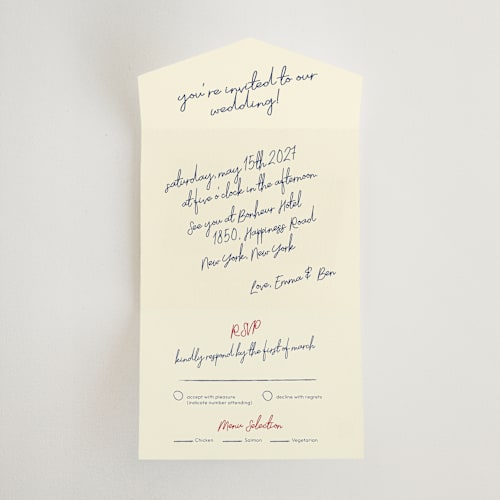 you're invited to our
wedding!
saturday, may 15th 2027
at five o'clock in the afternoon
See you at Bonheur Hotel
1850, Happiness Road
New York, New York
Love, Emma & Ben
RSVP
kindly respond by the first of march
accept with pleasure
(indicate number attending)
decline with regrets
Menu Selection
Chicken Salmon Vegetarian